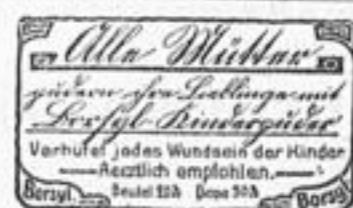 Alle Mütter
pudern ihre Lieblinge mit
Borsyl-Kinderpuder
Verhütet jedes Wundsein der Kinder
Aerztlich empfohlen.
Borsyl. Beutel 25 A Dose 50 A Borsyl